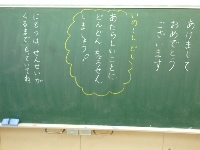 あけまして
おめでとう
ございます
あたらしいことに
どんどんちょうせん
しましょう!
にもつは、せんせいが
くるまでもっていてね。